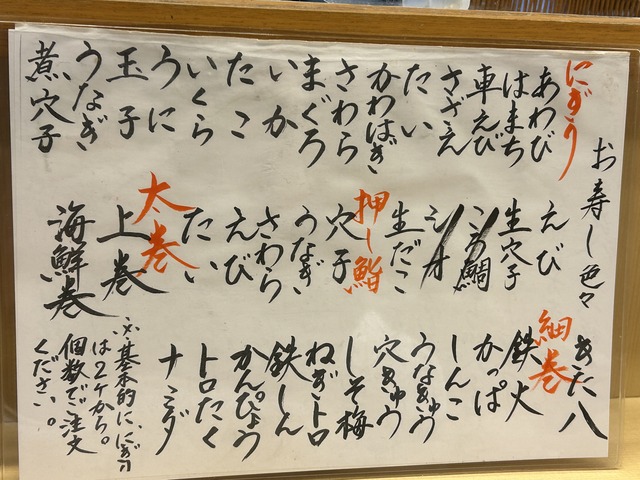 お寿し色々
にぎり
あわび
はまち
車えび
さざえ
たい
かわはぎ
さわら
まぐろ
いか
たこ
いくら
うに
玉子
うなぎ
煮穴子
えび
生穴子
生だこ
押し鮨
穴子
うなぎ
さわら
えび
たい
太巻
上巻
海鮮巻
細巻
鉄火
かっぱ
しんこ
うなきゅう
穴きゅう
しそ梅
ねぎトロ
鉄しん
かんぴょう
トロたく
ナミダ
※基本的に、にぎり
は2ケから。
個数でご注文
ください。